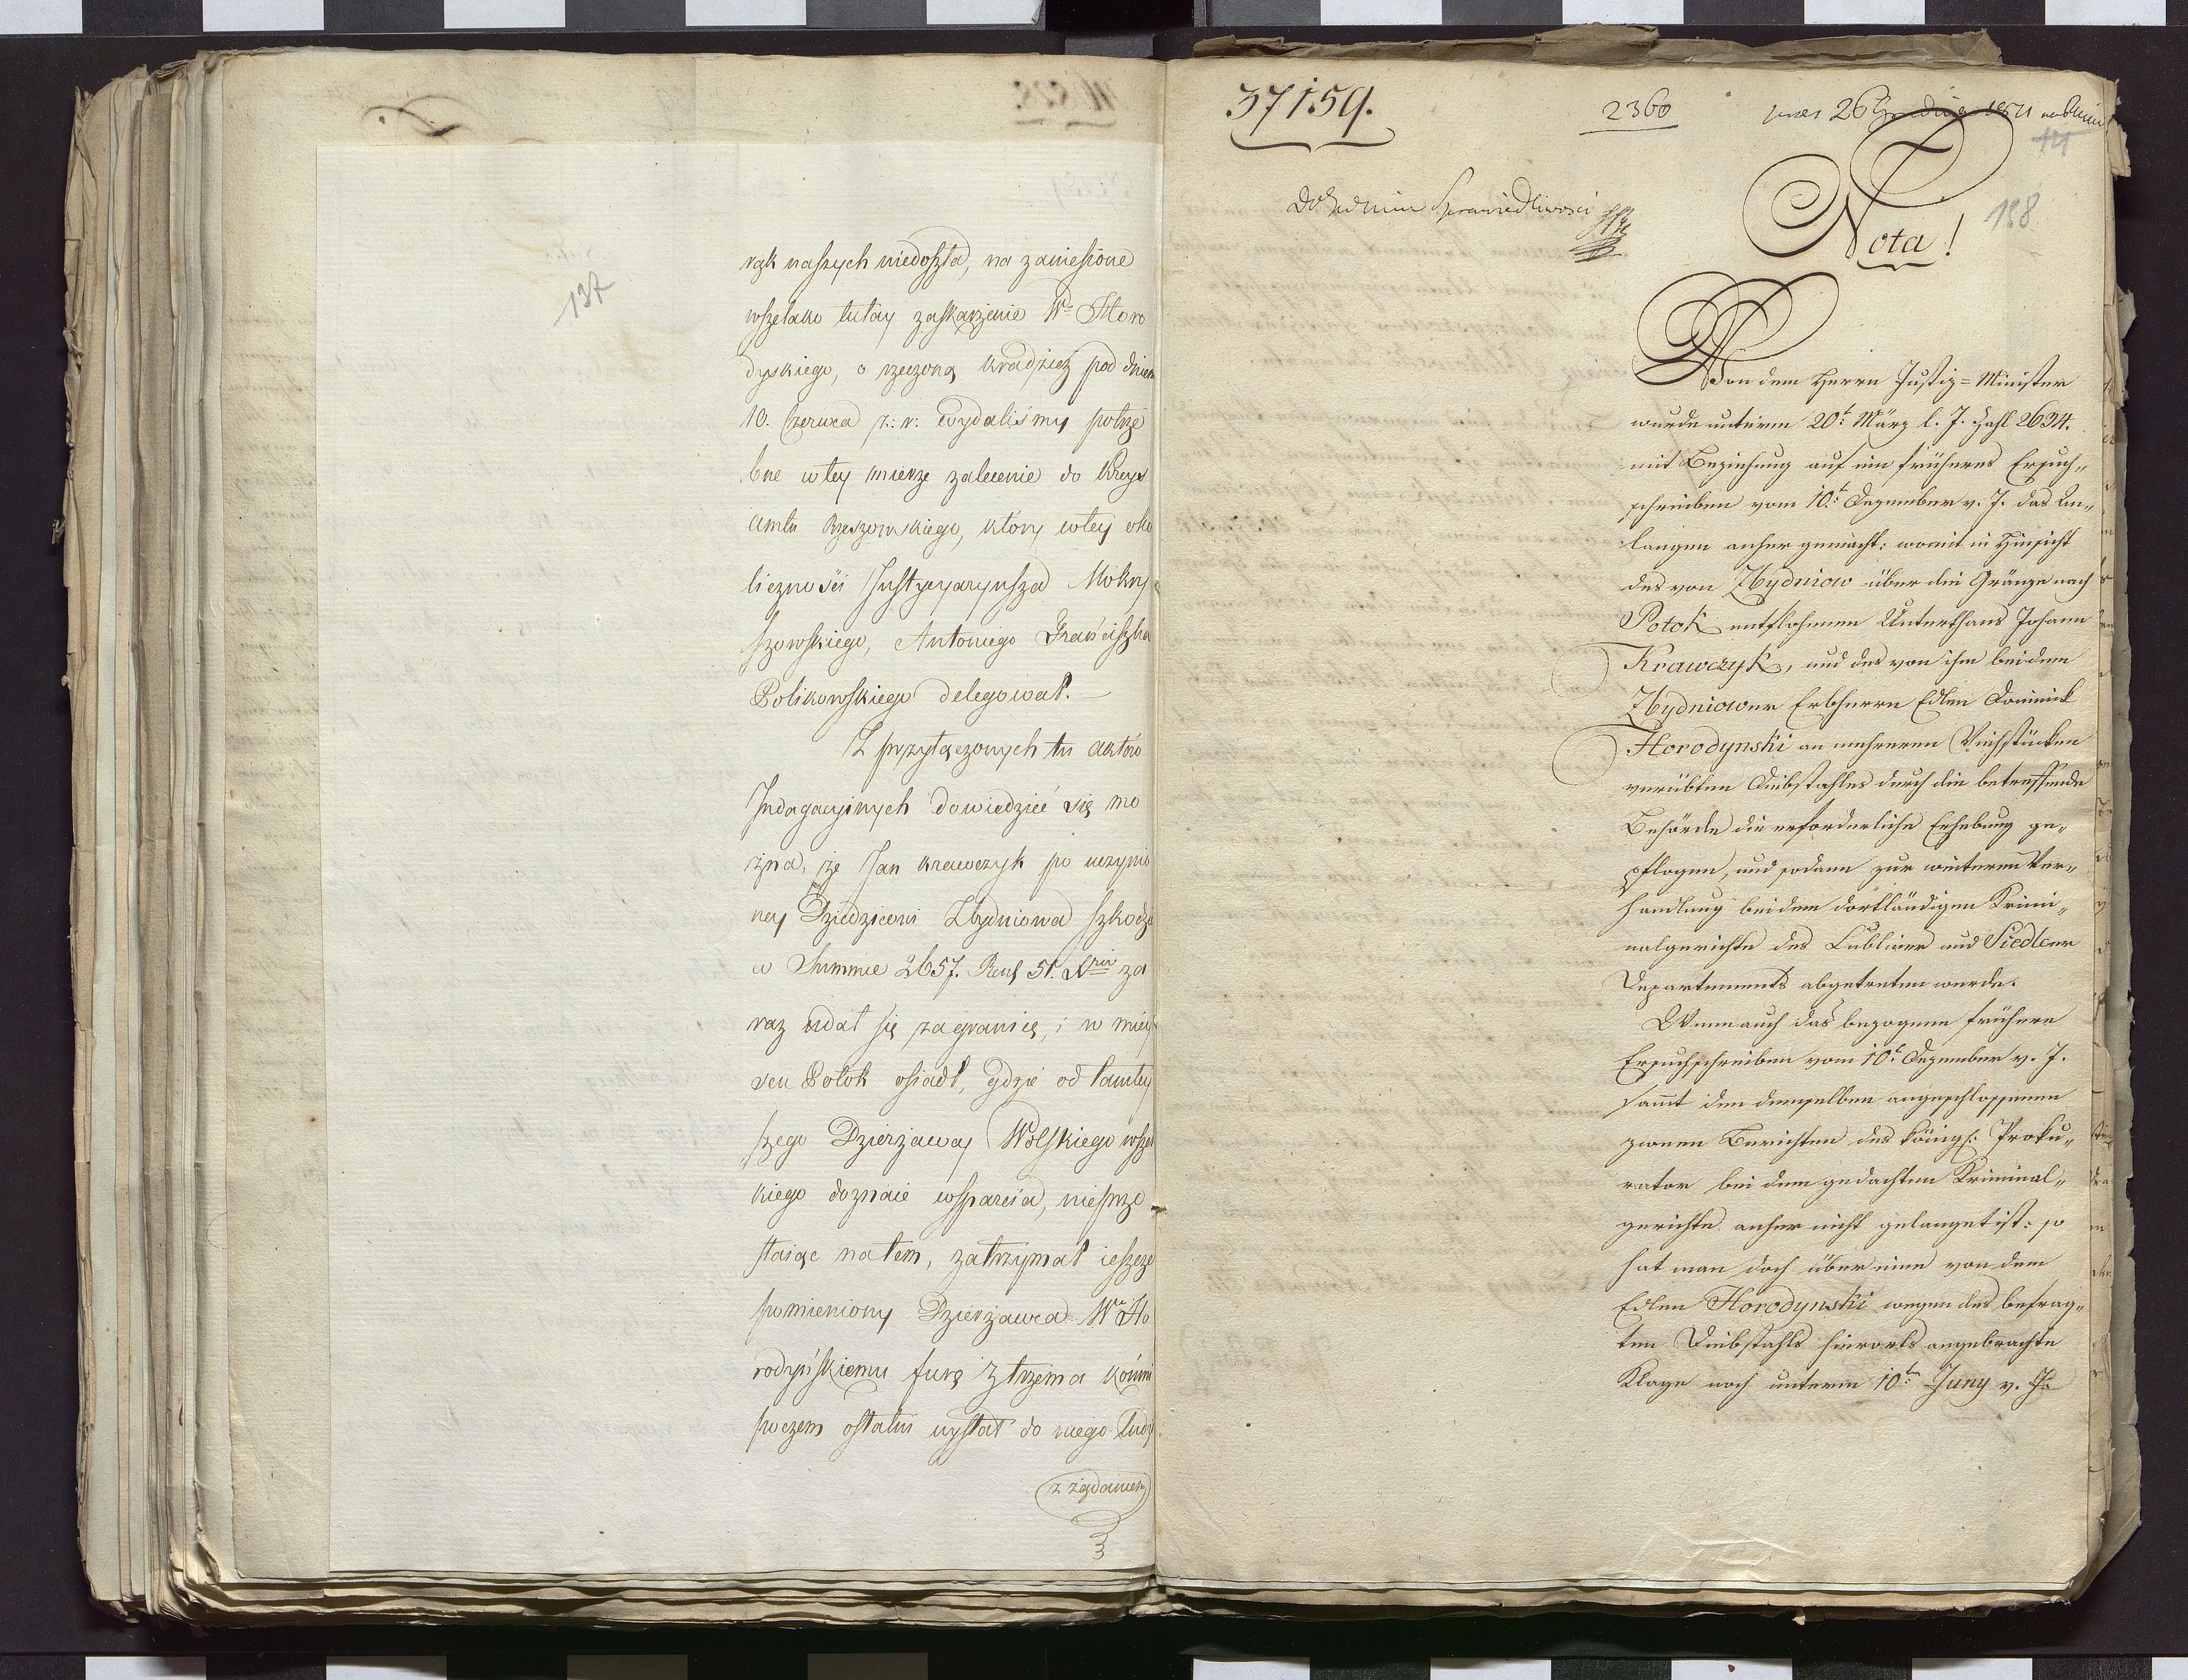 137
rąk naszych niedoszła, na zaniesione
wszelako tutay zaskarżenie Wo Horo
dyskiego, o rzeczoną kradzież pod dniem
10. Czerwca z: r: wydaliśmy potrze
bne w tey mierze zalecenie do Kreys
amtu Rzeszowskiego, ktory w tey oko
liczności Justycyaryusza Mokrzy
szowskiego, Antoniego Franciszka
Polikowskiego delegował. —
Z przyłączonych tu aktów
Indagacyinych dowiedzieć się mo
żna, że Jan Krawczyk po uczynio
ney Dziedzicowi Zbydniowa szkodzie
w Summie 2657. Reńs 51. Xrów za
raz udał się zagranicę, i w miey
scu Potok osiadł, gdzie od tamtey
szego Dzierżawcy Wolskiego wszel
kiego doznaie wsparcia, nieprze
staiąc na tem, zatrzymał ieszcze
pomieniony Dzierżawca Wu Ho
rodyńskiemu furę z trzema końmi
poczem ostatni wysłał do niego ludzi
z żądaniem
37159.
2360
26 Grudnia 1811
141
138
Do Rdmin Sprawiedliwosci
Nota!
Von dem Herrn Justiz-Minister
wurde unterm 20t: März l. J. Zahl 2634.
mit Beziehung auf ein früheres Ersuch„
schreiben vom 10t: Dezember v. J. das An„
langen anher gemacht: womit in Hinsicht
des von Zbydniow über die Gränze nach
Potok entflohenen Unterthans Johann
Krawczyk, und des von ihm bei dem
Zbydniower Erbherrn Edlen Dominik
Horodynski an mehreren Viehstücken
verübten Diebstahles durch die betreffende
Behörde die erforderliche Erhebung ge„
pflogen, und sodann zur weiteren Ver„
handlung bei dem dortländigen Krimi„
nalgerichte des Lubliner und Siedlcer
Departements abgetreten werde.
Wenn auch das bezogene frühere
Ersuchschreiben vom 10t: Dezember v. J.
sammt den demselben angeschlossenen
zween Berichten des königl: Proku„
rator bei dem gedachten Kriminal„
gerichte anher nicht gelanget ist: so
hat man doch über eine von dem
Edlen Horodynski wegen des befrag„
ten Diebstahls hierorts angebrachte
Klage noch unterm 10t: Juny v. J.